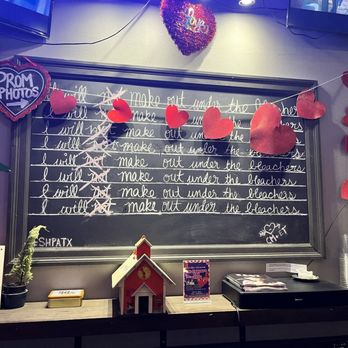 Love
PROM
PHOTOS
I will not make out under the bleachers.
I will not make out under the bleachers.
I will not make out under the bleachers.
I will not make out under the bleachers.
I will not make out under the bleachers.
I will not make out under the bleachers.
I will not make out under the bleachers.
I will not make out under the bleachers.
@SHPATX
CM+ET